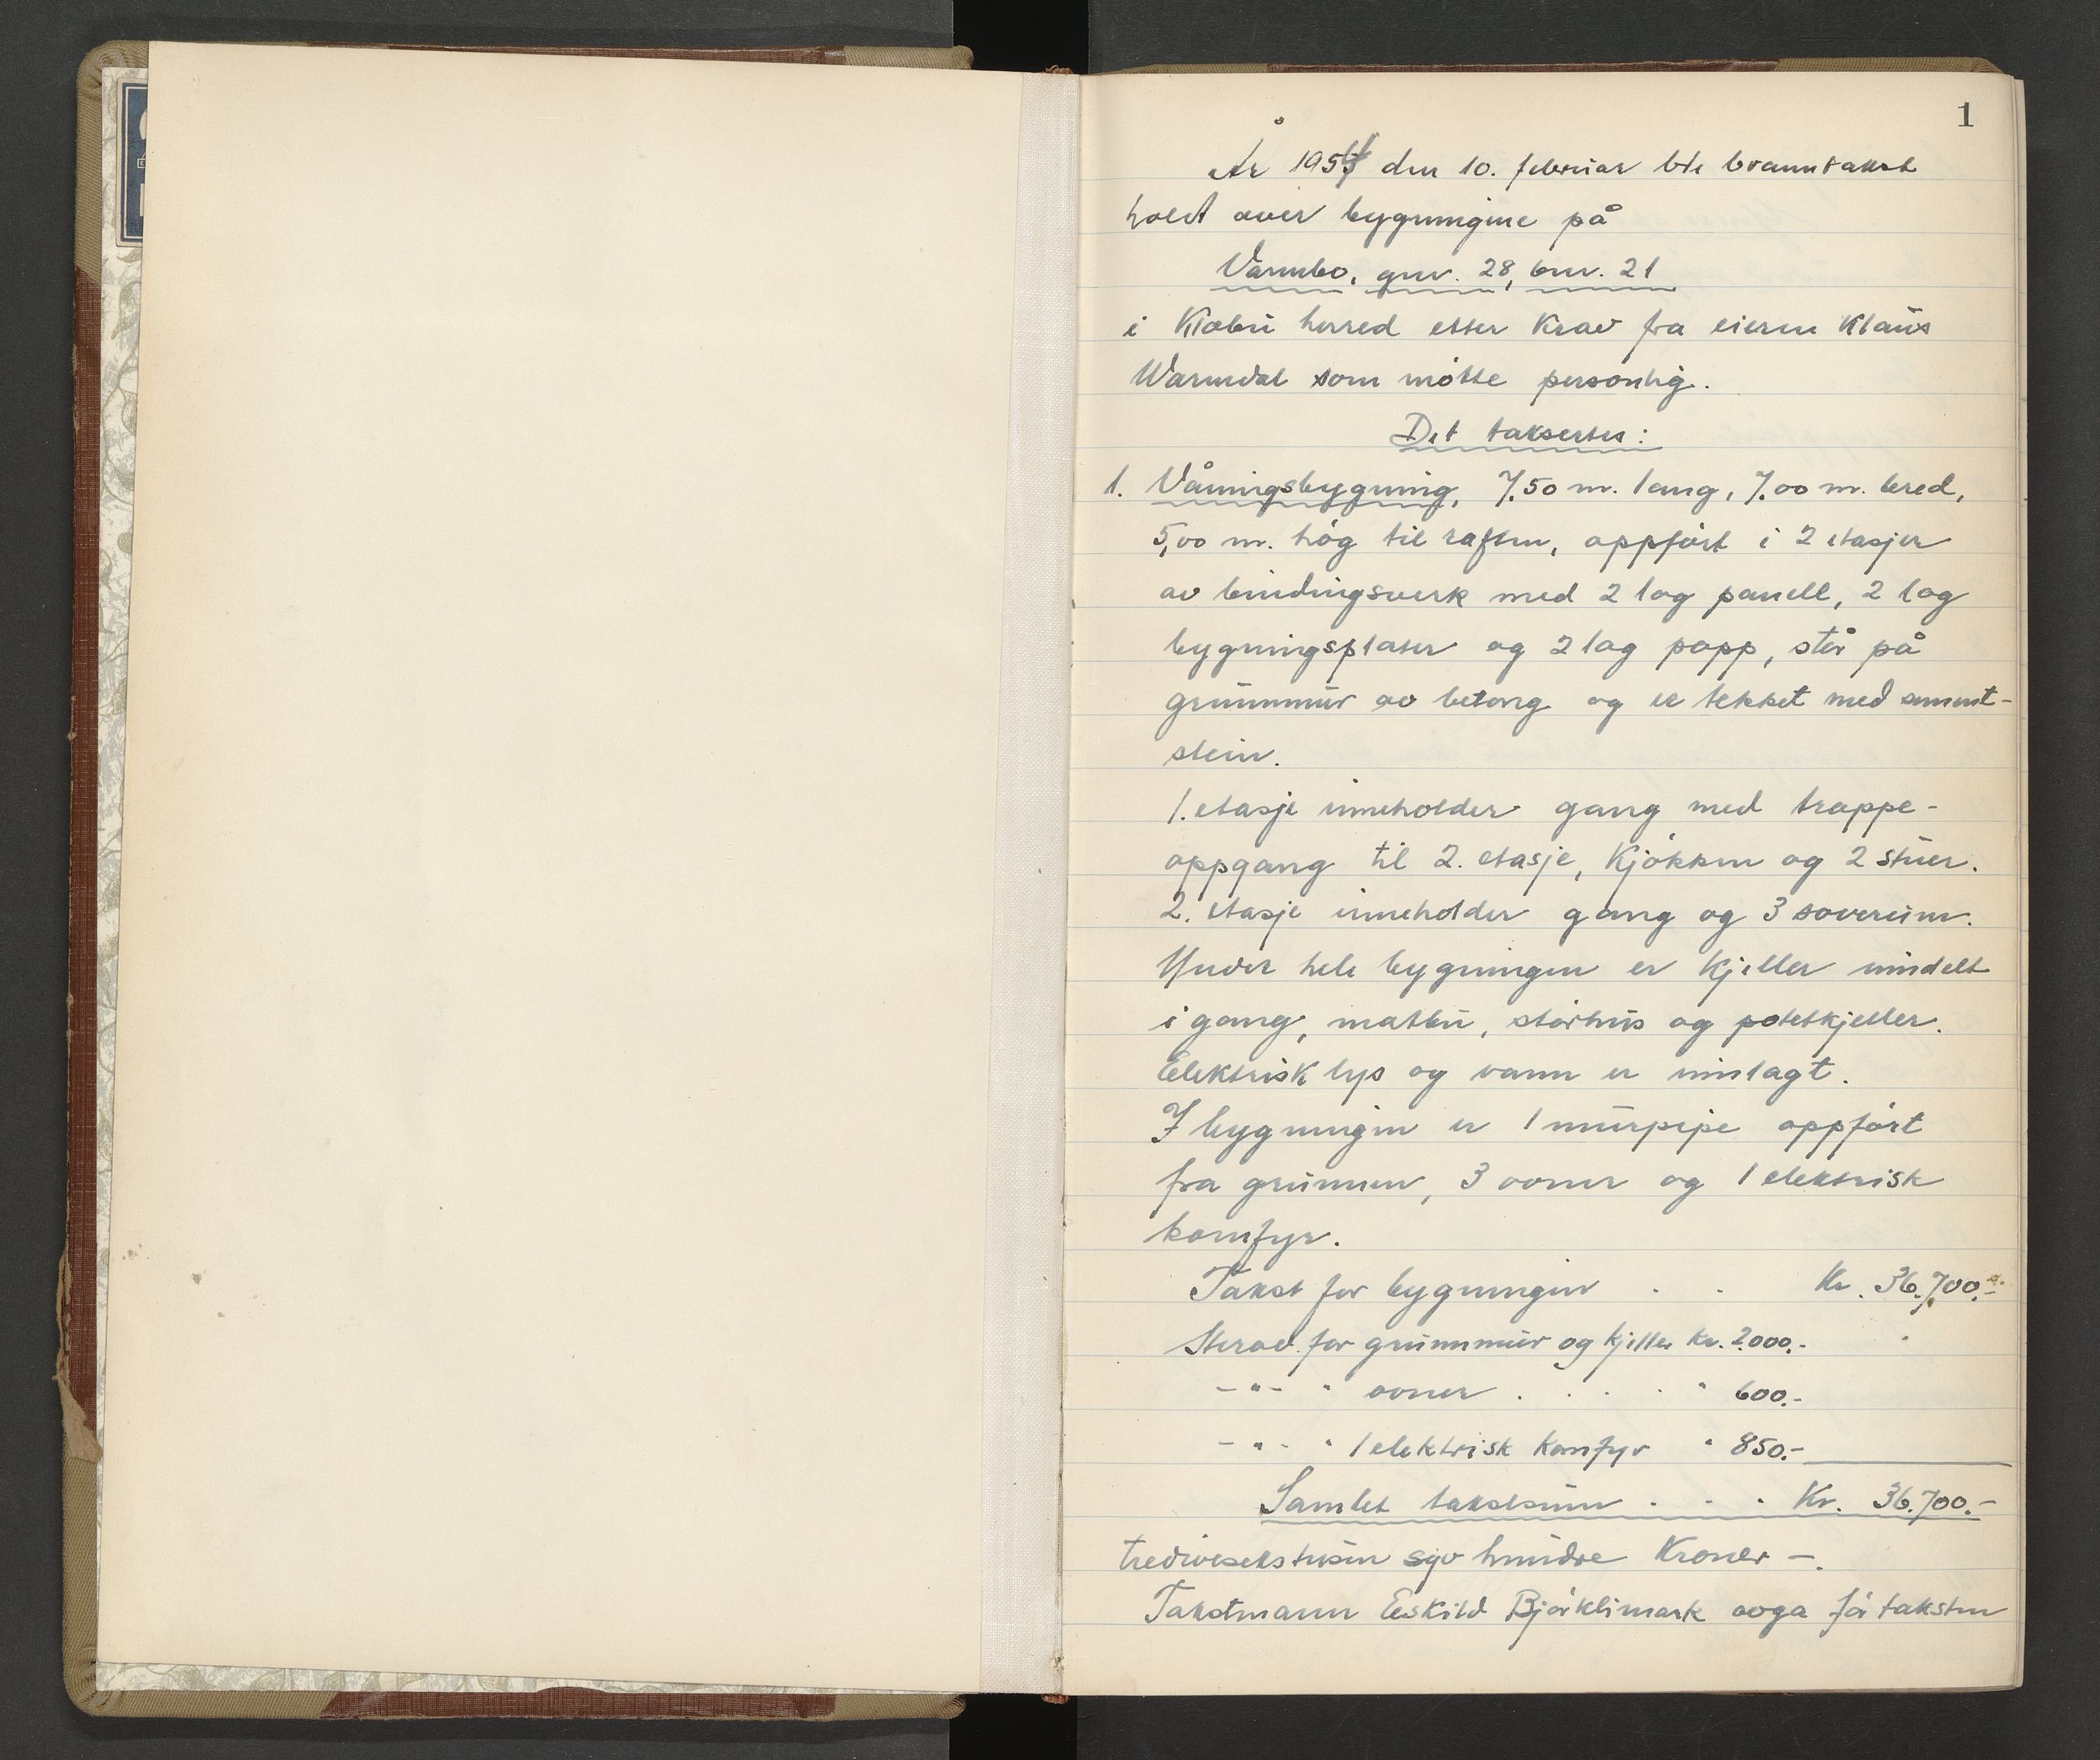 1
År 1954 den 10. februar ble branntakst
holdt over bygningene på
Varmbo, gnr. 28, bnr. 21
i Klæbu herred etter krav fra eieren Klaus
Warmdal som møtte personlig.
Det takseres:
1. Våningsbygning, 7,50 m. lang, 7,00 m. bred,
5,00 m. høg til raften, oppført i 2 etasjer
av bindingsverk med 2 lag panell, 2 lag
bygningsplater og 2 lag papp, står på
grunnmur av betong og er tekket med sement-
stein.
1. etasje inneholder gang med trappe-
oppgang til 2. etasje, kjøkken og 2 stuer.
2. etasje inneholder gang og 3 soverum.
Under hele bygningen er kjeller inndelt
i gang, matbu, størhus og potetkjeller.
Elektrisk lys og vann er innlagt.
I bygningen er 1 murpipe oppført
fra grunnen, 3 ovner og 1 elektrisk
komfyr.
Takst for bygningen . . Kr. 36.700.-
Herav for grunnmur og kjeller kr. 2.000.-
-"- " ovner . . . . " 600.-
-"- " 1 elektrisk komfyr " 850.-
Samlet takstsum . . . Kr. 36.700.-
tredivesekstusen syv hundre kroner -.
Takstmann Eskild Bjørklimark avga før taksten